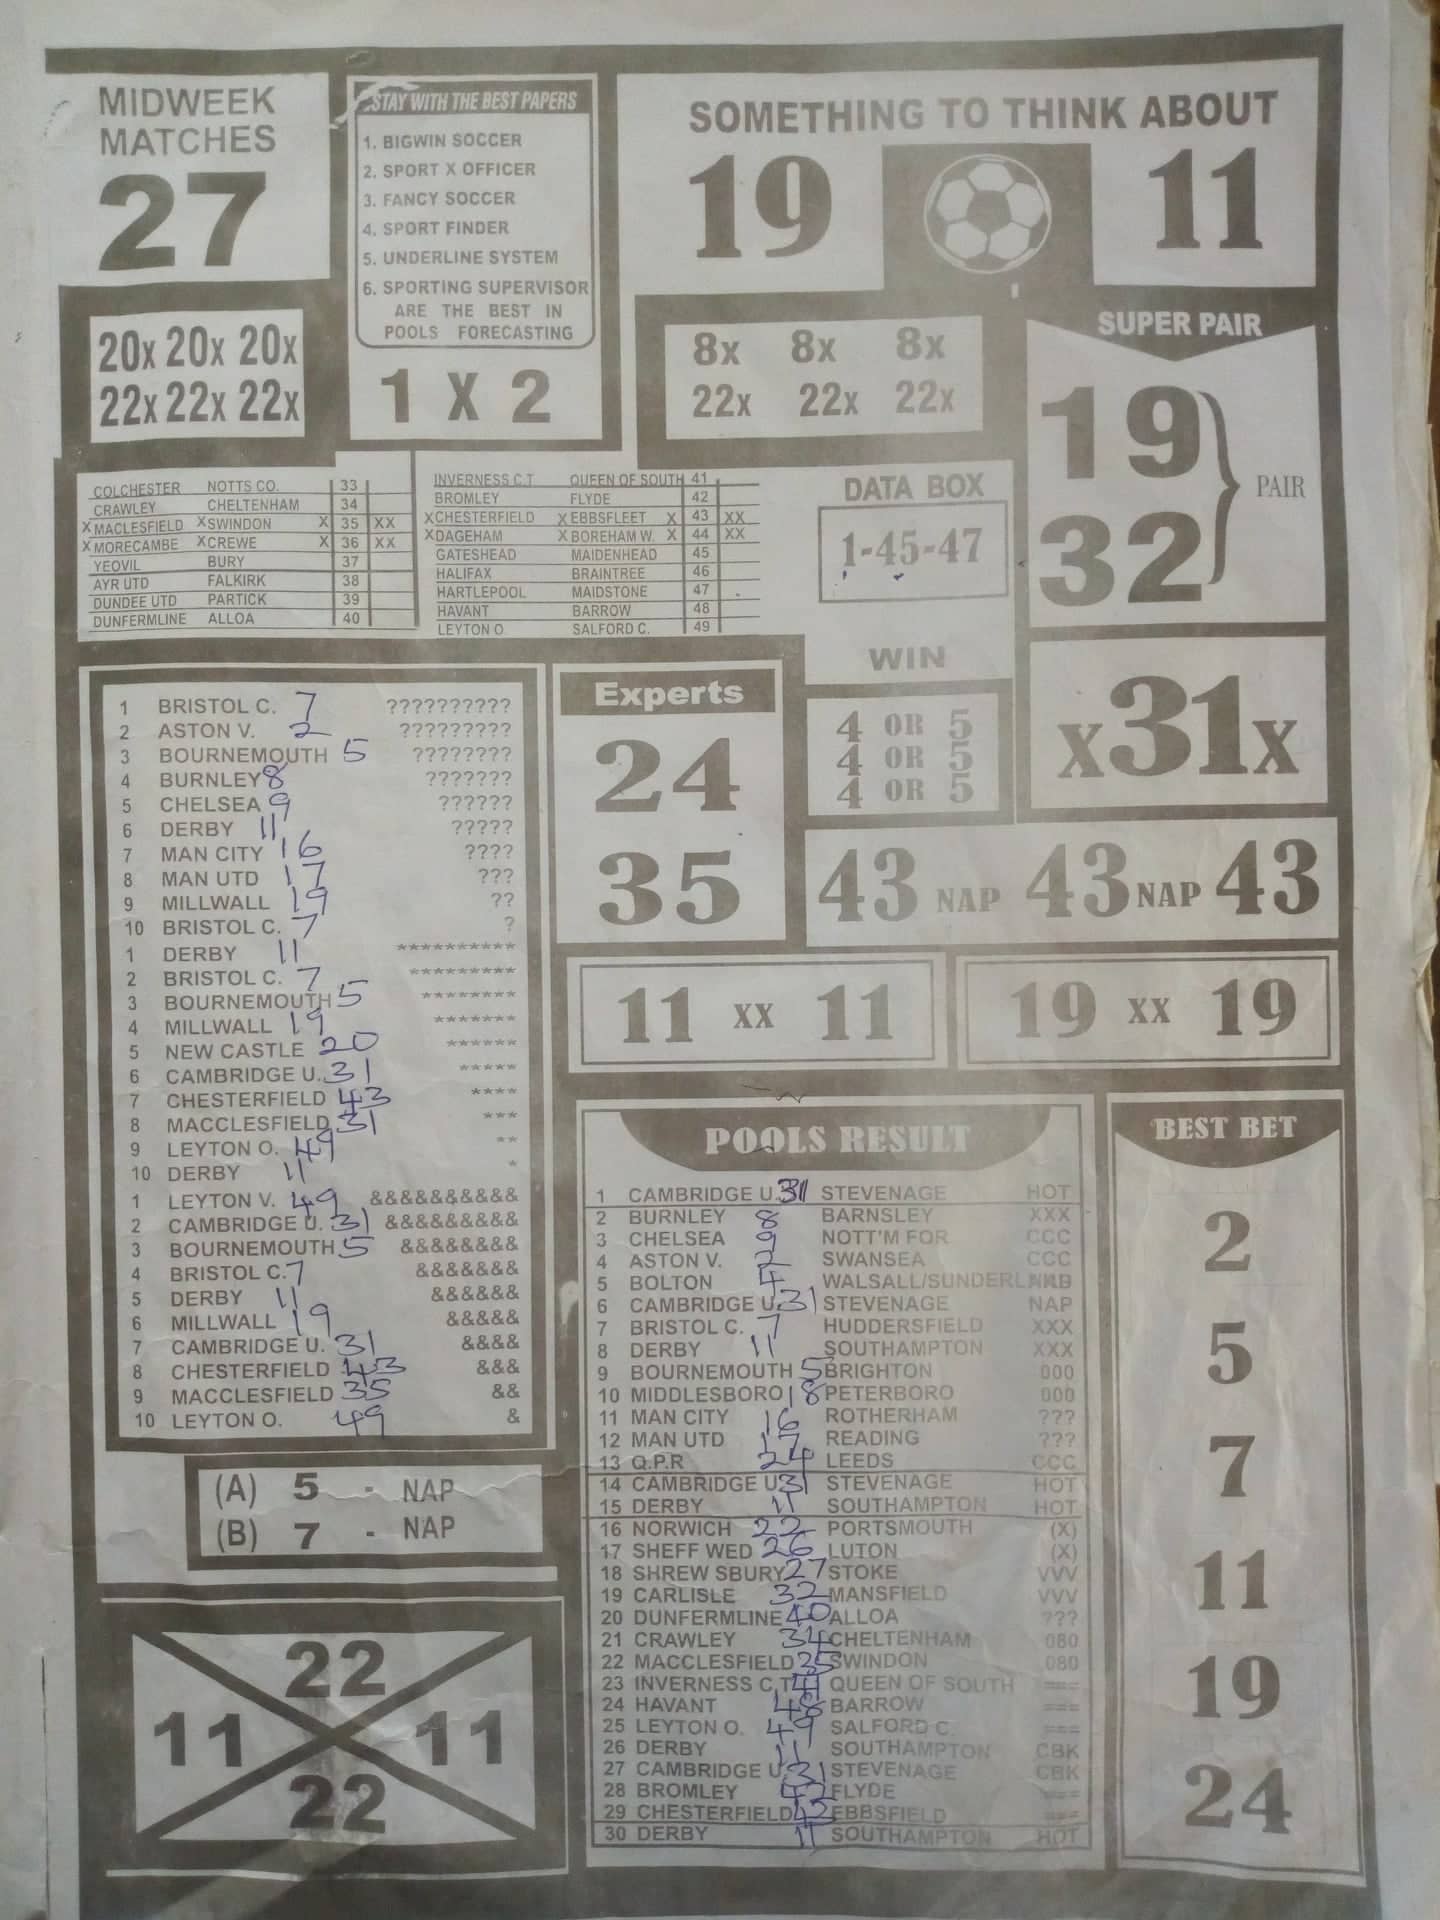 MIDWEEK
MATCHES
27
STAY WITH THE BEST PAPERS
1. BIGWIN SOCCER
2. SPORT X OFFICER
3. FANCY SOCCER
4. SPORT FINDER
5. UNDERLINE SYSTEM
6. SPORTING SUPERVISOR
ARE THE BEST IN
POOLS FORECASTING
1 X 2
SOMETHING TO THINK ABOUT
19 11
20x 20x 20x
22x 22x 22x
8x 8x 8x
22x 22x 22x
SUPER PAIR
19
32
PAIR
COLCHESTER NOTTS CO. 33
CRAWLEY CHELTENHAM 34
X MACLESFIELD X SWINDON X 35 XX
X MORECAMBE X CREWE X 36 XX
YEOVIL BURY 37
AYR UTD FALKIRK 38
DUNDEE UTD PARTICK 39
DUNFERMLINE ALLOA 40
INVERNESS C.T QUEEN OF SOUTH 41
BROMLEY FLYDE 42
X CHESTERFIELD X EBBSFLEET X 43 XX
X DAGEHAM X BOREHAM W. X 44 XX
GATESHEAD MAIDENHEAD 45
HALIFAX BRAINTREE 46
HARTLEPOOL MAIDSTONE 47
HAVANT BARROW 48
LEYTON O. SALFORD C. 49
DATA BOX
1-45-47
WIN
4 OR 5
4 OR 5
4 OR 5
x31x
Experts
24
35
43 NAP 43 NAP 43
11 xx 11
19 xx 19
1 BRISTOL C. 7 ??????????
2 ASTON V. 2 ?????????
3 BOURNEMOUTH 5 ????????
4 BURNLEY 8 ???????
5 CHELSEA 9 ??????
6 DERBY 11 ?????
7 MAN CITY 16 ????
8 MAN UTD 17 ???
9 MILLWALL 19 ??
10 BRISTOL C. 7 ?
1 DERBY 11 **********
2 BRISTOL C. 7 *********
3 BOURNEMOUTH 5 ********
4 MILLWALL 19 *******
5 NEW CASTLE 20 ******
6 CAMBRIDGE U. 31 *****
7 CHESTERFIELD 43 ****
8 MACCLESFIELD 31 ***
9 LEYTON O. 49 **
10 DERBY 11 *
1 LEYTON V. 49 &&&&&&&&&&
2 CAMBRIDGE U. 31 &&&&&&&&&
3 BOURNEMOUTH 5 &&&&&&&&
4 BRISTOL C. 7 &&&&&&&
5 DERBY 11 &&&&&&
6 MILLWALL 19 &&&&&
7 CAMBRIDGE U. 31 &&&&
8 CHESTERFIELD 43 &&&
9 MACCLESFIELD 35 &&
10 LEYTON O. 49 &
(A) 5 - NAP
(B) 7 - NAP
22
11 11
22
POOLS RESULT
1 CAMBRIDGE U. 31 STEVENAGE HOT
2 BURNLEY 8 BARNSLEY XXX
3 CHELSEA 9 NOTT'M FOR CCC
4 ASTON V. 2 SWANSEA CCC
5 BOLTON 4 WALSALL/SUNDERL
6 CAMBRIDGE U. 31 STEVENAGE NAP
7 BRISTOL C. 7 HUDDERSFIELD XXX
8 DERBY 11 SOUTHAMPTON XXX
9 BOURNEMOUTH 5 BRIGHTON 000
10 MIDDLESBORO 18 PETERBORO 000
11 MAN CITY 16 ROTHERHAM ???
12 MAN UTD 17 READING ???
13 Q.P.R 24 LEEDS CCC
14 CAMBRIDGE U. 31 STEVENAGE HOT
15 DERBY 11 SOUTHAMPTON HOT
16 NORWICH 22 PORTSMOUTH (X)
17 SHEFF WED 26 LUTON (X)
18 SHREW SBURY 27 STOKE VVV
19 CARLISLE 32 MANSFIELD VVV
20 DUNFERMLINE 40 ALLOA ???
21 CRAWLEY 34 CHELTENHAM 080
22 MACCLESFIELD 35 SWINDON 080
23 INVERNESS C.T 41 QUEEN OF SOUTH ===
24 HAVANT 48 BARROW ===
25 LEYTON O. 49 SALFORD C. ===
26 DERBY 11 SOUTHAMPTON CBK
27 CAMBRIDGE U. 31 STEVENAGE CBK
28 BROMLEY 42 FLYDE ===
29 CHESTERFIELD 43 EBBSFIELD ===
30 DERBY 11 SOUTHAMPTON HOT
BEST BET
2
5
7
11
19
24